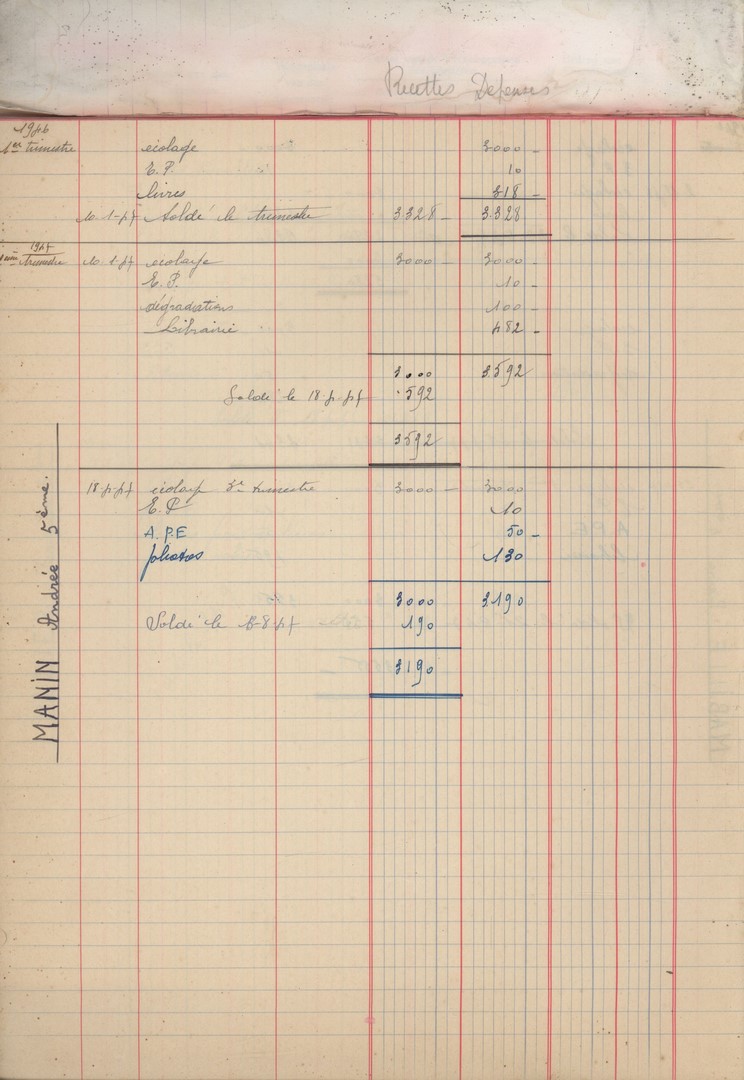 Recettes Depenses
1946
1er trimestre écolage 3000 -
E.P. 10
livres 318 -
10.1.47 Soldé le trimestre 3.328 - 3.328
1947
trimestre 10.1.47 écolage 3000 - 3000 -
E.P. 10 -
dégradations 100 -
Librairie 482 -
3000 3.592
Soldé le 18.4.47 592
3592
18.4.47 écolage 3e trimestre 3000 - 3000
E.P 10
A.P.E 50 -
photos 130
3000 3190
Soldé le 8.47 190
3190
MANIN Andrée 5ème.